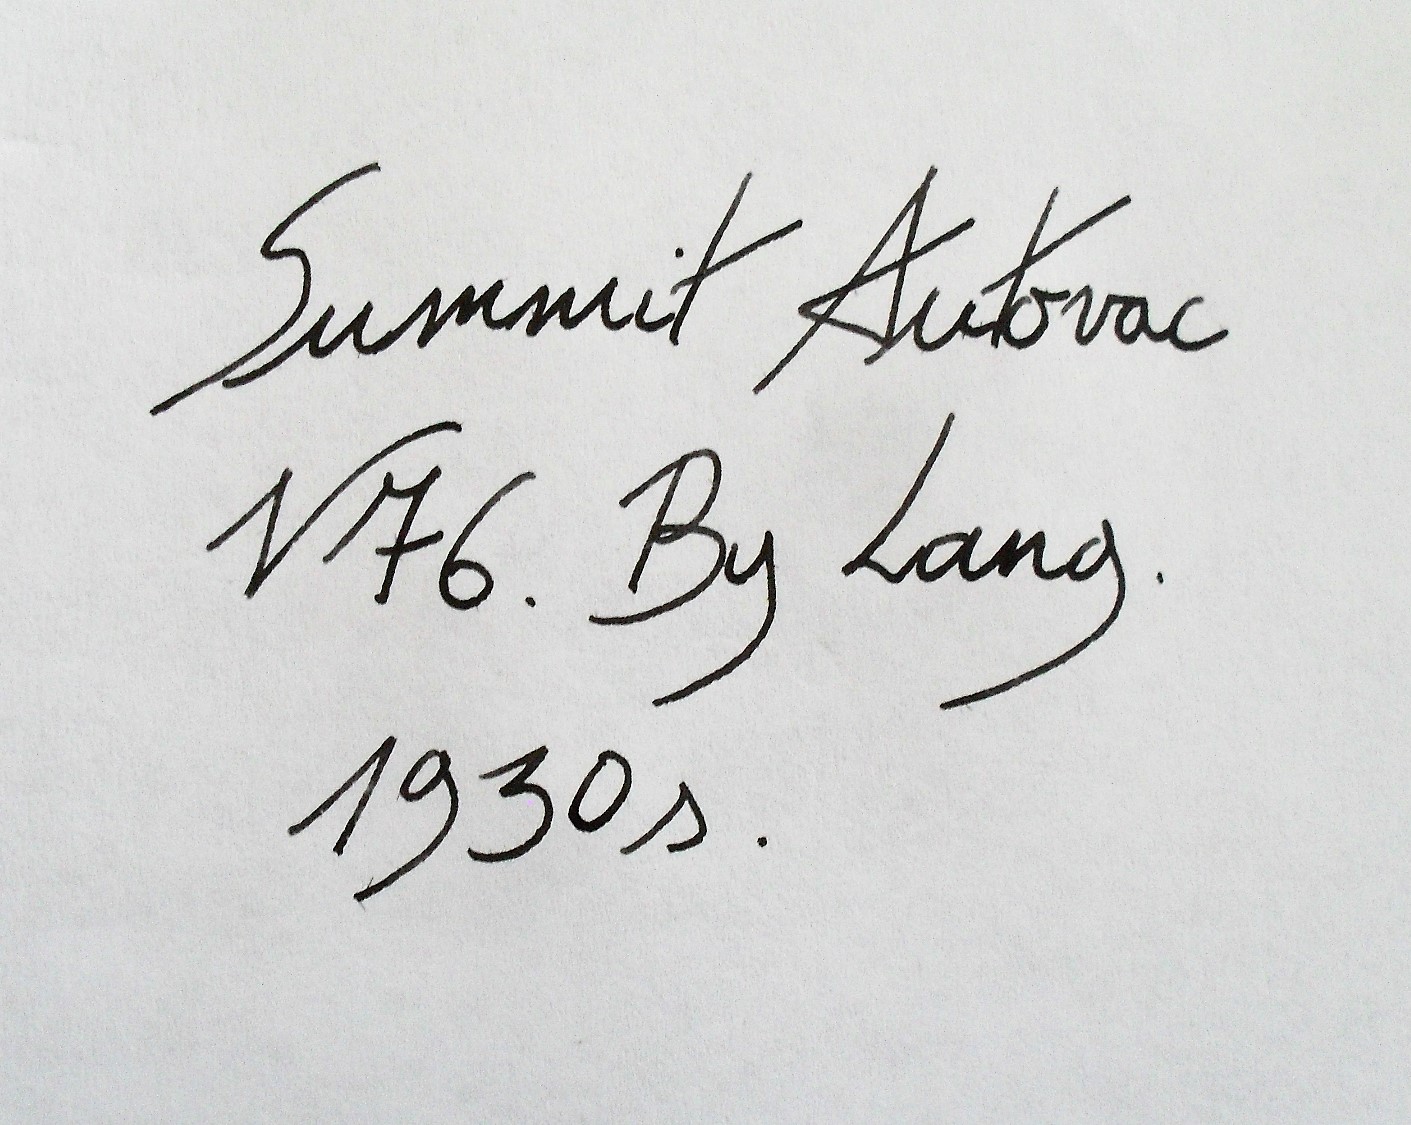 Summit Autovac
V76. By Lang.
1930s.